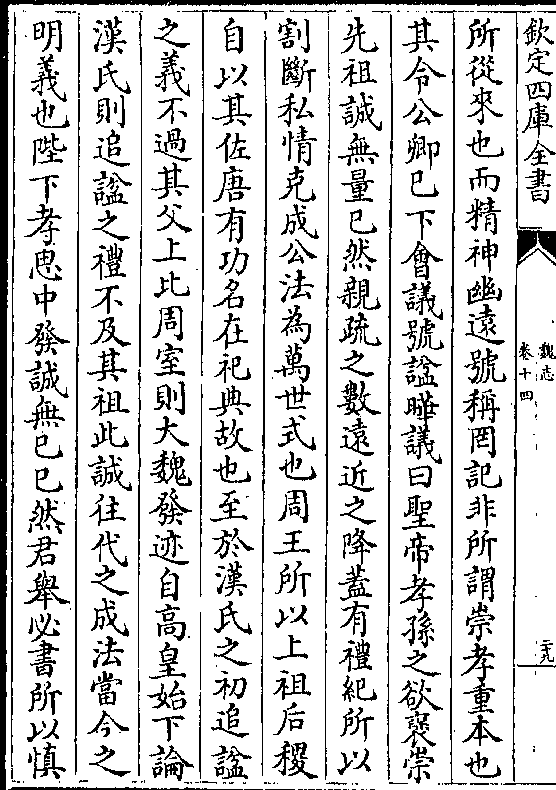 欽定四庫全書
魏志
卷十四
二十九
所從來也而精神幽遠號稱罔記非所謂崇孝重本也
其令公卿已下會議號諡曄議曰聖帝孝孫之欲襃崇
先祖誠無量已然親疏之數遠近之降蓋有禮紀所以
割斷私情克成公法為萬世式也周王所以上祖后稷
自以其佐唐有功名在祀典故也至於漢氏之初追諡
之義不過其父上比周室則大魏發迹自高皇始下論
漢氏則追諡之禮不及其祖此誠往代之成法當今之
明義也陛下孝思中發誠無已已然君舉必書所以慎